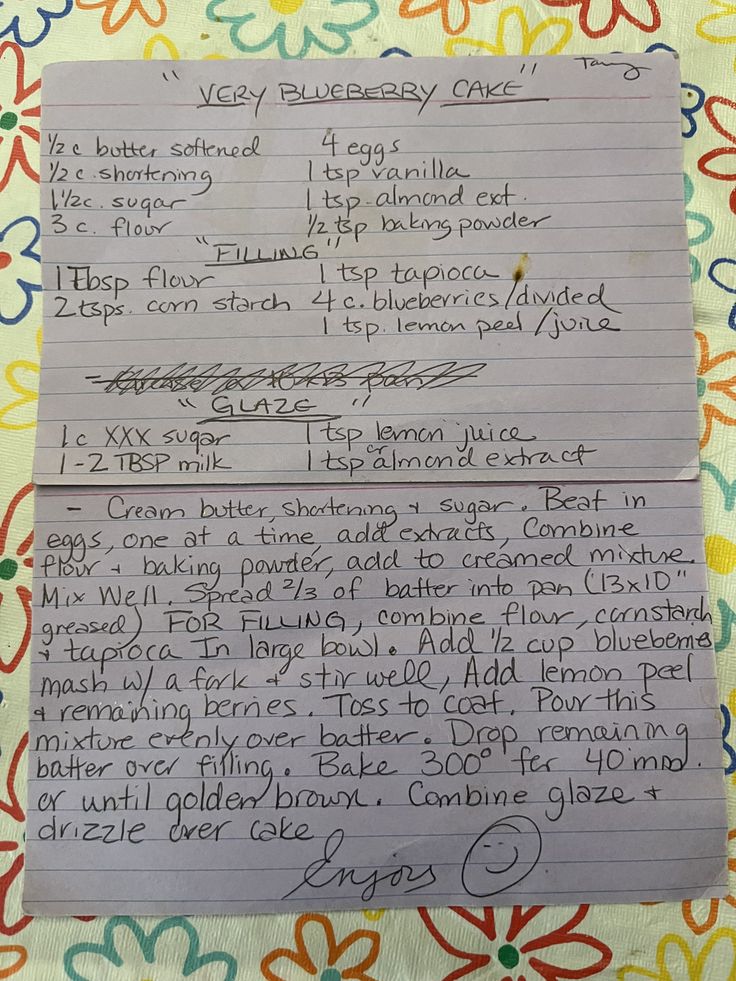 Tammy
" VERY BLUEBERRY CAKE "
1/2 c butter softened 4 eggs
1/2 c. shortening 1 tsp vanilla
1 1/2 c. sugar 1 tsp. almond ext.
3 c. flour 1/2 tsp baking powder
"FILLING"
1 Tbsp flour 1 tsp tapioca
2 tsps. corn starch 4 c. blueberries/divided
1 tsp. lemon peel /juice
" GLAZE "
1 c XXX sugar 1 tsp lemon juice
or
1-2 TBSP milk 1 tsp almond extract
- Cream butter, shortening + sugar. Beat in
eggs, one at a time, add extracts, Combine
flour + baking powder, add to creamed mixture.
Mix Well. Spread 2/3 of batter into pan (13x10"
greased) FOR FILLING, combine flour, cornstarch
+ tapioca In large bowl. Add 1/2 cup blueberries
mash w/ a fork + stir well, Add lemon peel
+ remaining berries. Toss to coat. Pour this
mixture evenly over batter. Drop remaining
batter over filling. Bake 300° for 40 min.
or until golden brown. Combine glaze +
drizzle over cake
Enjoy